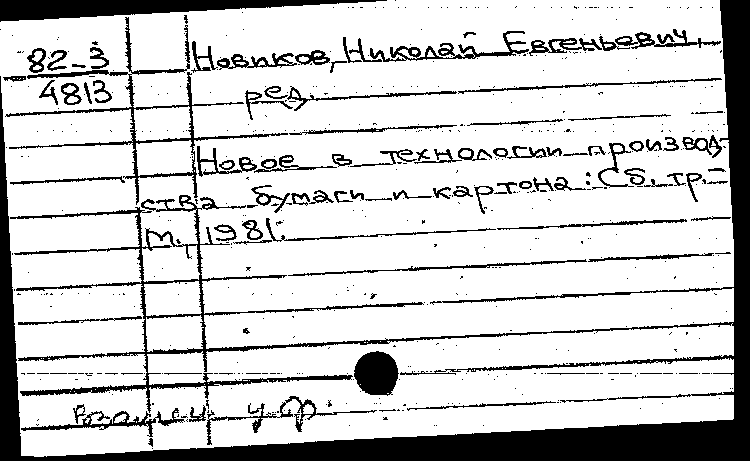 82-3 Новиков, Николай Евгеньевич,
4813 ред.
Новое в технологии производ-
ства бумаги и картона : Сб. тр. –
М., 1981.
Взамен